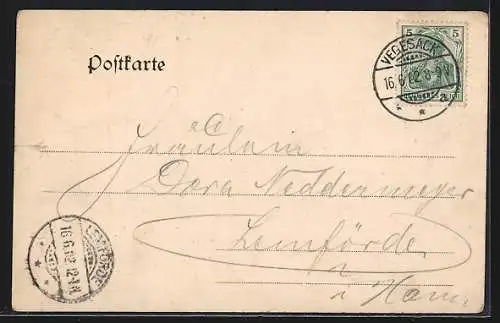 Postkarte
5 5
VEGESACK
16.6.02 8-9V.
a
Fräulein
Dora Neddermeyer
Lemförde
i
i Hann.
LEMFÖRDE
16.6.02 12-1N.